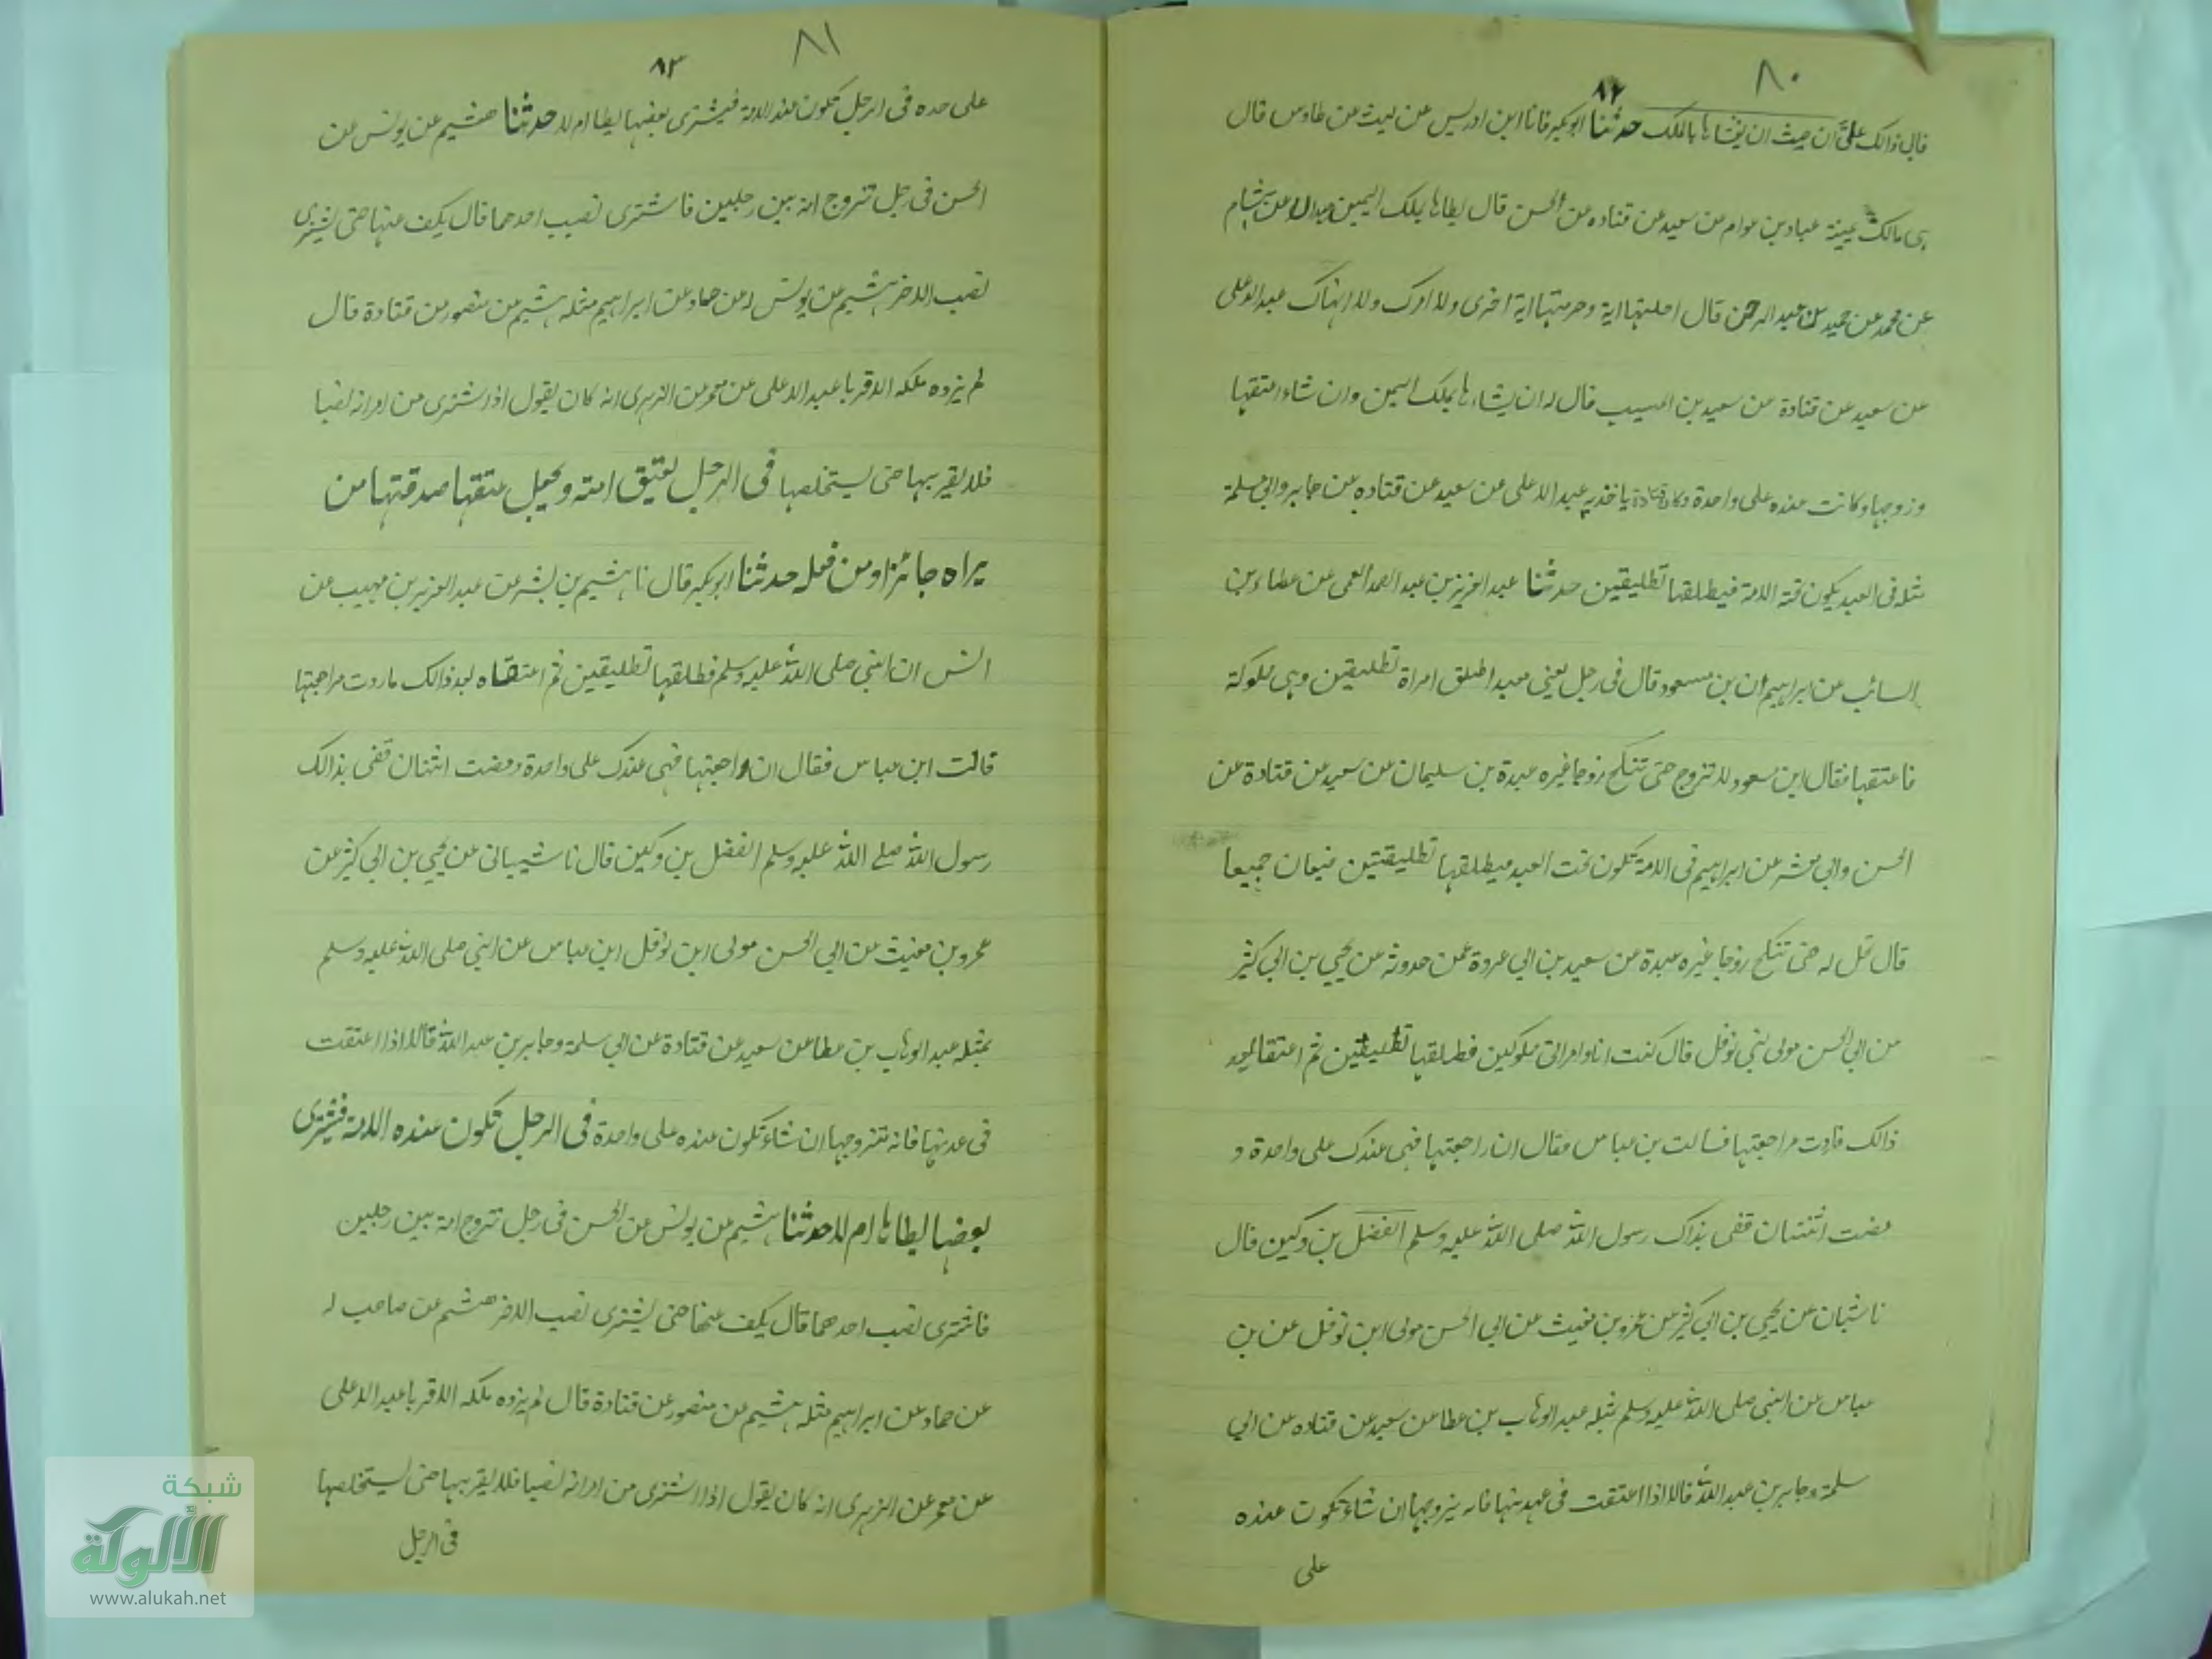 ٨٠
٨٢
قال ذالك على ان حيث ان يغشاها بالملك حدثنا ابوبكر قانا ابن ادريس عن ليث عن طاوس قال
عيينة عباد بن عوام عن سعيد عن قتاده عن الحسن قال يطاها بملك اليمين عبدالاعلى عن هشام
عن محمد عن حميد بن عبد الرحمن قال احلتها اية وحرمتها اية اخرى ولا امرك ولا انهاك عبد الاعلى
عن سعيد عن قتادة عن سعيد بن المسيب قال له ان يشاء ها بملك اليمين وان شاء اعتقها
وزوجها وكانت عنده على واحدة وكان قتادة ياخذ به عبد الاعلى عن سعيد عن قتاده عن جابر وابى سلمة
مثله فى العبد يكون تحته الامة فيطلقها تطليقين حدثنا عبد العزيز بن عبد الصمد العمى عن عطاء بن
السائب عن ابراهيم ان بن مسعود قال فى رجل يعنى عبدا طلق امراة تطليقين وهى مملوكة
فاعتقها فقال ابن مسعود لا تزوج حتى تنكح زوجا غيره عبدة بن سليمان عن سعيد عن قتادة عن
الحسن وابى معشر عن ابراهيم فى الامة تكون تحت العبد فيطلقها تطليقتين فيعان جميعا
قال تحل له حتى تنكح زوجا غيره عبدة عن سعيد بن ابى عروة عمن حدوثه عن يحيى بن ابى كثير
من ابى الحسن مولى بنى نوفل قال كنت انا وامراتى مملوكين فطلقها تطليقتين ثم اعتقا بعد
ذالك فاردت مراجعتها فسالت بن عباس فقال ان راجعتها فهى عندك على واحدة و
مضت اثنتان قضى بذاك رسول الله صلى الله عليه وسلم الفضل بن دكين قال
نا شيبان عن يحيى بن ابى كثير عن عمرو بن مغيث عن ابى الحسن مولى ابن نوفل عن بن
عباس عن النبى صلى الله عليه وسلم مثله عبد الوهاب بن عطا عن سعيد عن قتاده عن ابى
سلمة وجابر بن عبد الله قالا اذا اعتقت فى عدتها فانه يتزوجها ان شاء تكون عنده
على
٨١
٨٣
على حده فى الرجل تكون عند الامة فيشترى بعضها يطا ام لا حدثنا هشيم عن يونس عن
الحسن فى رجل تزوج امة بين رجلين فاشترى نصيب احدهما قال يكف عنها حتى يشترى
نصيب الاخر هشيم عن يونس عن حماد عن ابراهيم مثله هشيم عن منصور عن قتادة قال
لم يزده ملكه الا قربا عبد الاعلى عن معمر عن الزهرى انه كان يقول اذا اشترى من امراته نصيبا
فلا يقربها حتى يستخلصها فى الرجل يعتق امته ويجعل عتقها صدقتها من
يراه جائزا ومن فعله حدثنا ابوبكر قال نا هشيم بن بشر عن عبد العزيز بن صهيب عن
انس ان النبى صلى الله عليه وسلم فطلقها تطليقين ثم اعتقاه بعد ذالك فاردت مراجعتها
قالت ابن عباس فقال ان راجعتها فهى عندك على واحدة ومضت اثنتان قضى بذالك
رسول الله صلے الله عليه وسلم الفضل بن دكين قال نا شيبانى عن يحيى بن ابى كثير عن
عمرو بن مغيث عن ابى الحسن مولى ابن نوفل ابن عباس عن النبى صلى الله عليه وسلم
بمثله عبد الوهاب بن عطا عن سعيد عن قتادة عن ابى سلمة وجابر بن عبد الله قالا اذا اعتقت
فى عدتها فانه تتزوجها ان شاء تكون عنده على واحدة فى الرجل تكون عنده الامة فيشترى
بعضها ايطاها ام لا حدثنا هشيم عن يونس عن الحسن فى رجل تتزوج امة بين رجلين
فاشترى نصيب احدهما قال يكف عنها حتى يشترى نصيب الاخر هشيم عن صاحب له
عن حماد عن ابراهيم مثله هشيم عن منصور عن قتادة قال لم يزده ملكه الا قربا عبد الاعلى
عن معمر عن الزهرى انه كان يقول اذا اشترى من امراته نصيبا فلا يقربها حتى يستخلصها
فى الرجل
شبكة
الألوكة
www.alukah.net